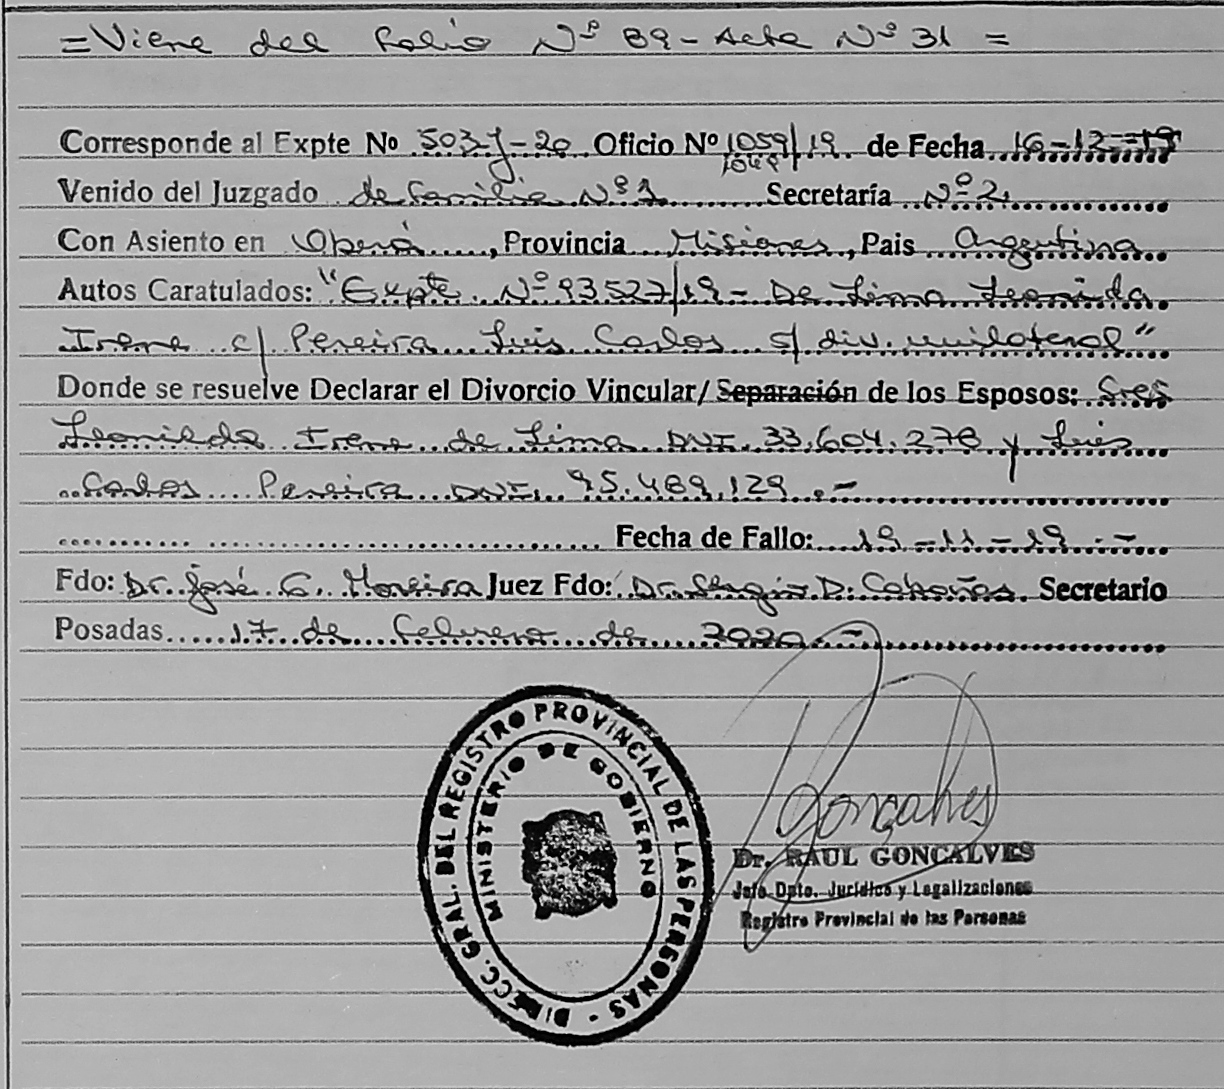 =Viene del folio Nº 89-Acta Nº 31 =
Corresponde al Expte No 503-J-20 Oficio Nº 1059/19 de Fecha 16-12-19
1049
Venido del Juzgado de familia Nº 1 Secretaría Nº 2
Con Asiento en Oberá, Provincia Misiones, Pais Argentina
Autos Caratulados: "Expte Nº 93527/19 - De Lima Leonilda
Irene c/ Pereira Luis Carlos s/ div. unilateral"
Donde se resuelve Declarar el Divorcio Vincular/ Separación de los Esposos: Sres
Leonilda Irene de Lima DNI. 33.604.278 y Luis
Carlos Pereira DNI. 95.489.129.-
Fecha de Fallo: 19-11-19.-
Fdo: Dr. José G. Moreira Juez Fdo: Dr. Sergio D. Cabañas. Secretario
Posadas 17 de febrero de 2020.-
DIRECC. GRAL. DEL REGISTRO PROVINCIAL DE LAS PERSONAS -
MINISTERIO DE GOBIERNO
Goncalves
Dr. RAUL GONCALVES
Jefe Dpto. Jurídico y Legalizaciones
Registro Provincial de las Personas